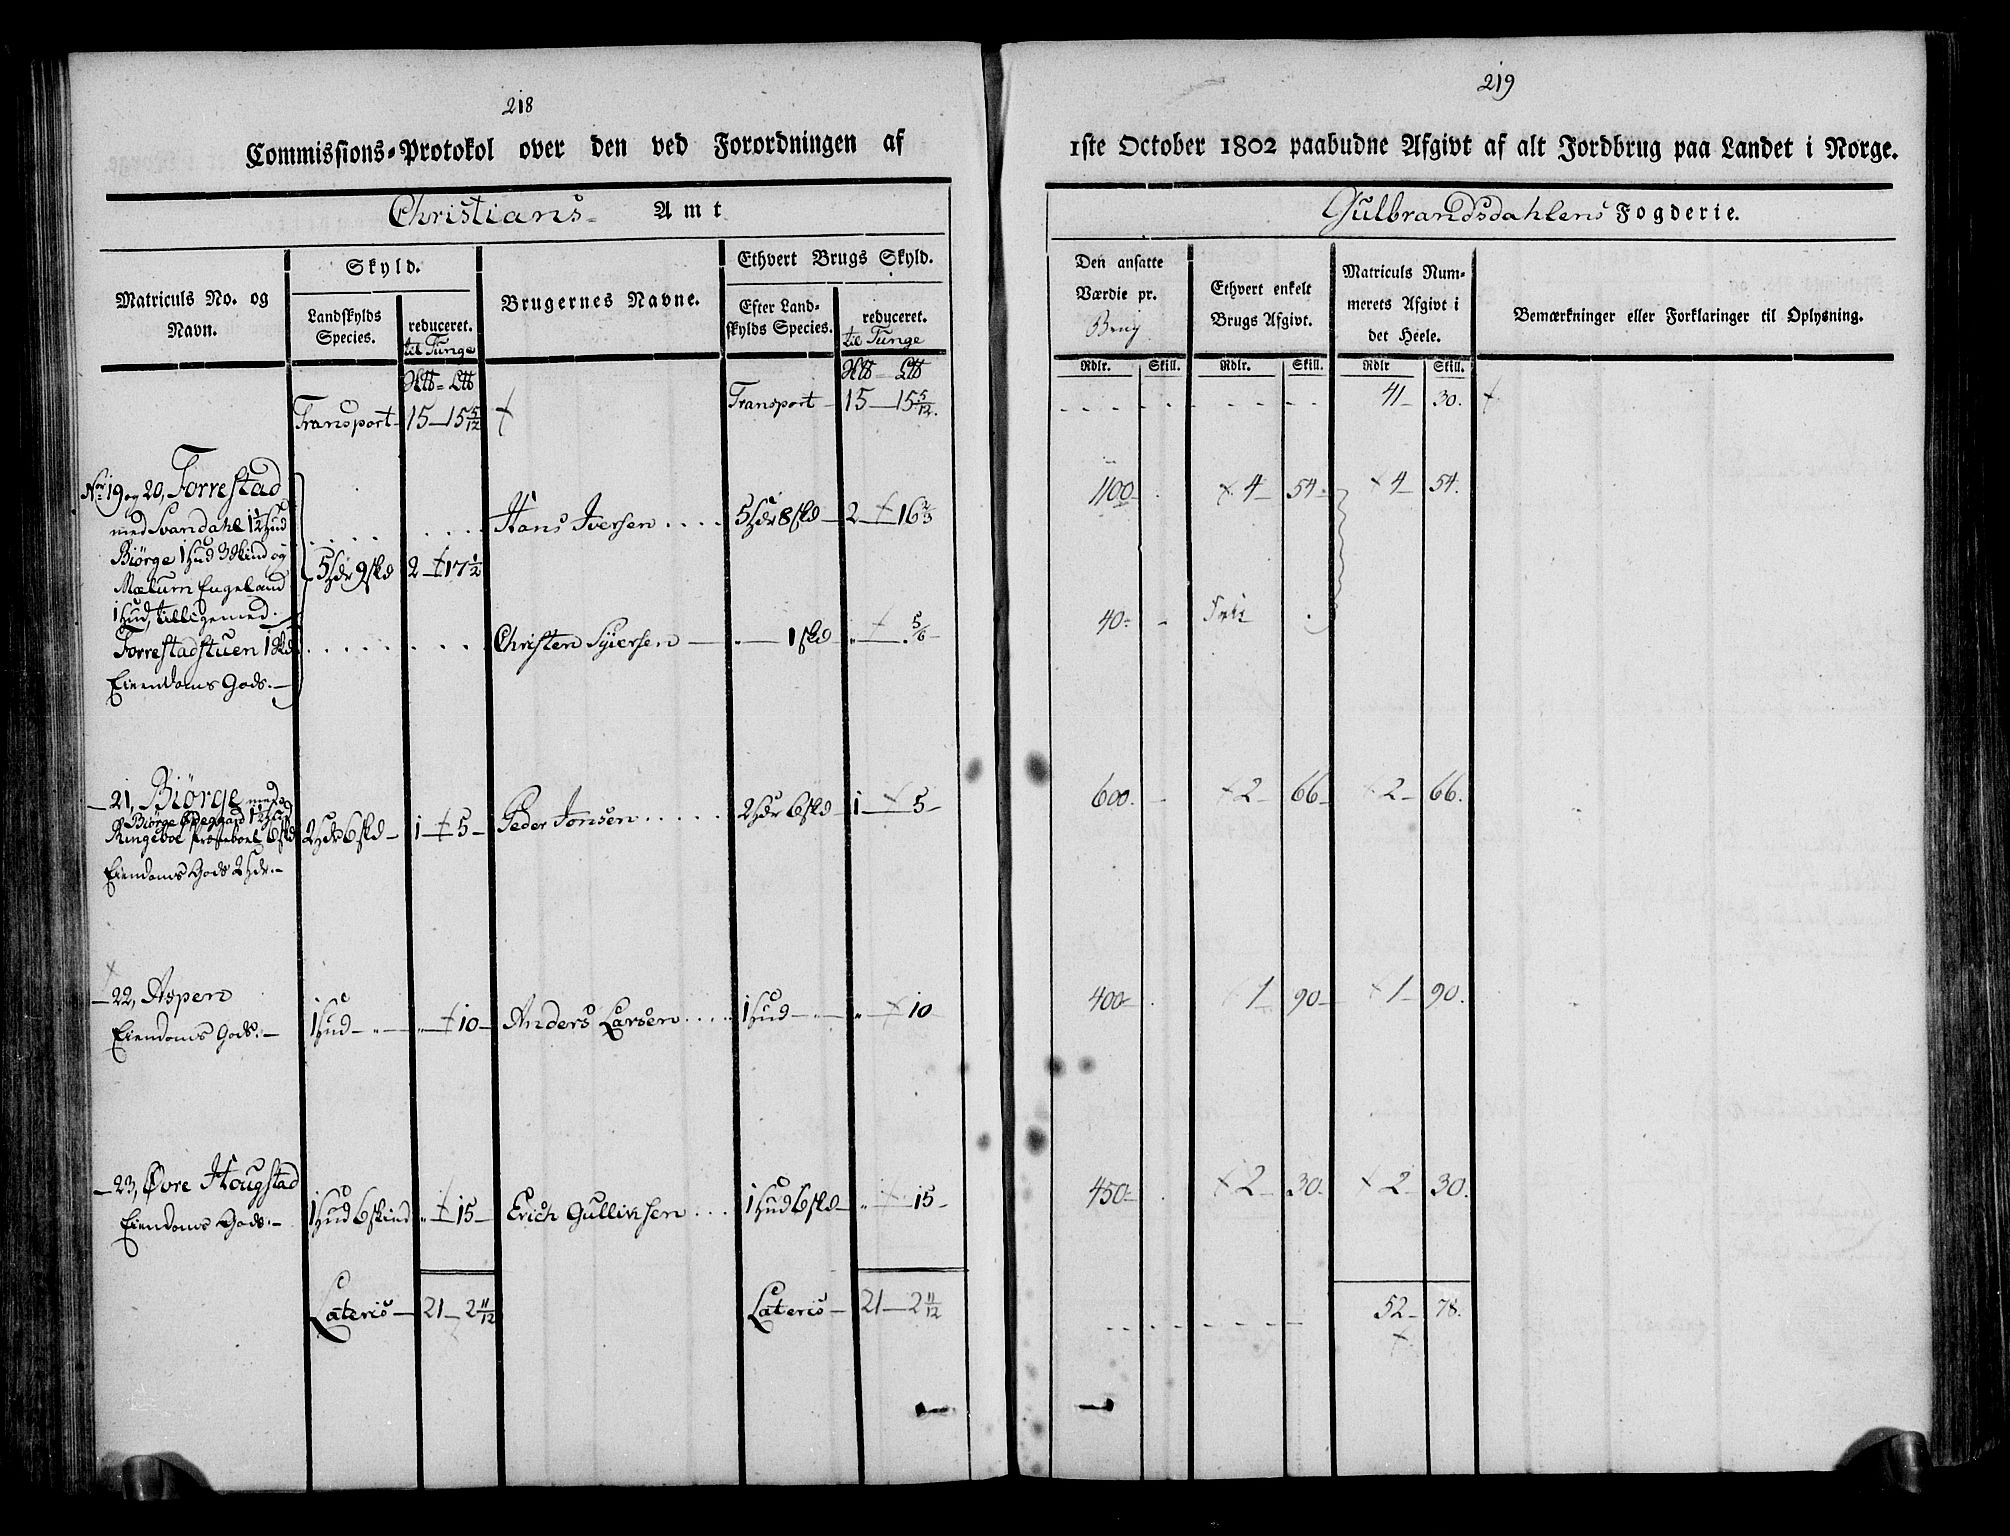 218
Commissions-Protokol over den ved Forordningen af
Christians- Amt
Matriculs No. og Navn.
Skyld.
Landskylds Species.
reduceret. til Tunge
Brugernes Navne.
Ethvert Brugs Skyld.
Efter Landskylds Species.
reduceret. til Tunge
Transport- 15-15 5/12 Transport- 15-15 5/12.
Nor 19 og 20, Torrestad
med Svandahl 1½ Hud
Biørge 1 Hud 3 Skind og
Mælum Engeland
1 Hud, tilligemed
Torrestadstuen 1 Skd
Eiendoms Gods.-
5 Hdr 9 skd 2-17½
Hans Iversen .... 5 Hdr 8 skd-2-16⅔
Christen Syversen - "-1 skd "-5/6-
-21, Biørge med
Biørge Ødegaard 1½ Hud
Ringeboe Præsteboel 6 skd
Eiendoms Gods 2 Hdr.-
2 Hdr 6 skd- 1-5- Peder Jonsen ..... 2 Hdr 6 skd- 1-5-
-22, Aspen
Eiendoms Gods.-
1 Hud-"- "-10- Anders Larsen .... 1 Hud-"- "-10
-23, Øvre Hougstad
Eiendoms Gods.-
1 Hud 6 skind "-15- Erich Gulliksen ... 1 Hud 6 skd- "-15-
Lateris- 21-2 11/12 Lateris- 21-2 11/12
219
1ste October 1802 paabudne Afgivt af alt Jordbrug paa Landet i Norge.
Gulbrandsdahlens Fogderie.
Den ansatte Værdie pr. Brug
Ethvert enkelt Brugs Afgivt.
Matriculs Nummerets Afgivt i det Heele.
Bemærkninger eller Forklaringer til Oplysning.
Rdlr. Skill. Rdlr. Skill. Rdlr Skill.
41- 30.
1100- 4- 54- 4- 54.
40-
600.- 2- 66- 2- 66.
400- 1- 90- 1- 90.
450- 2- 30. 2- 30.
52- 78.